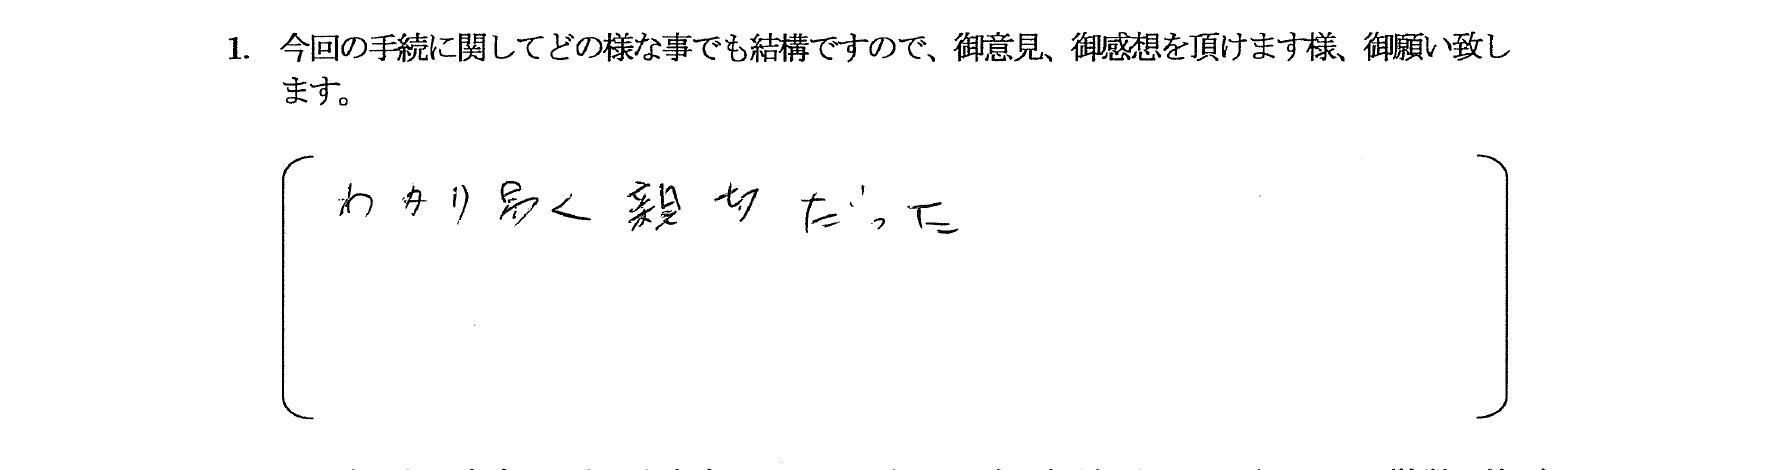 1. 今回の手続に関してどの様な事でも結構ですので、御意見、御感想を頂けます様、御願い致し
ます。
わかり易く親切だった